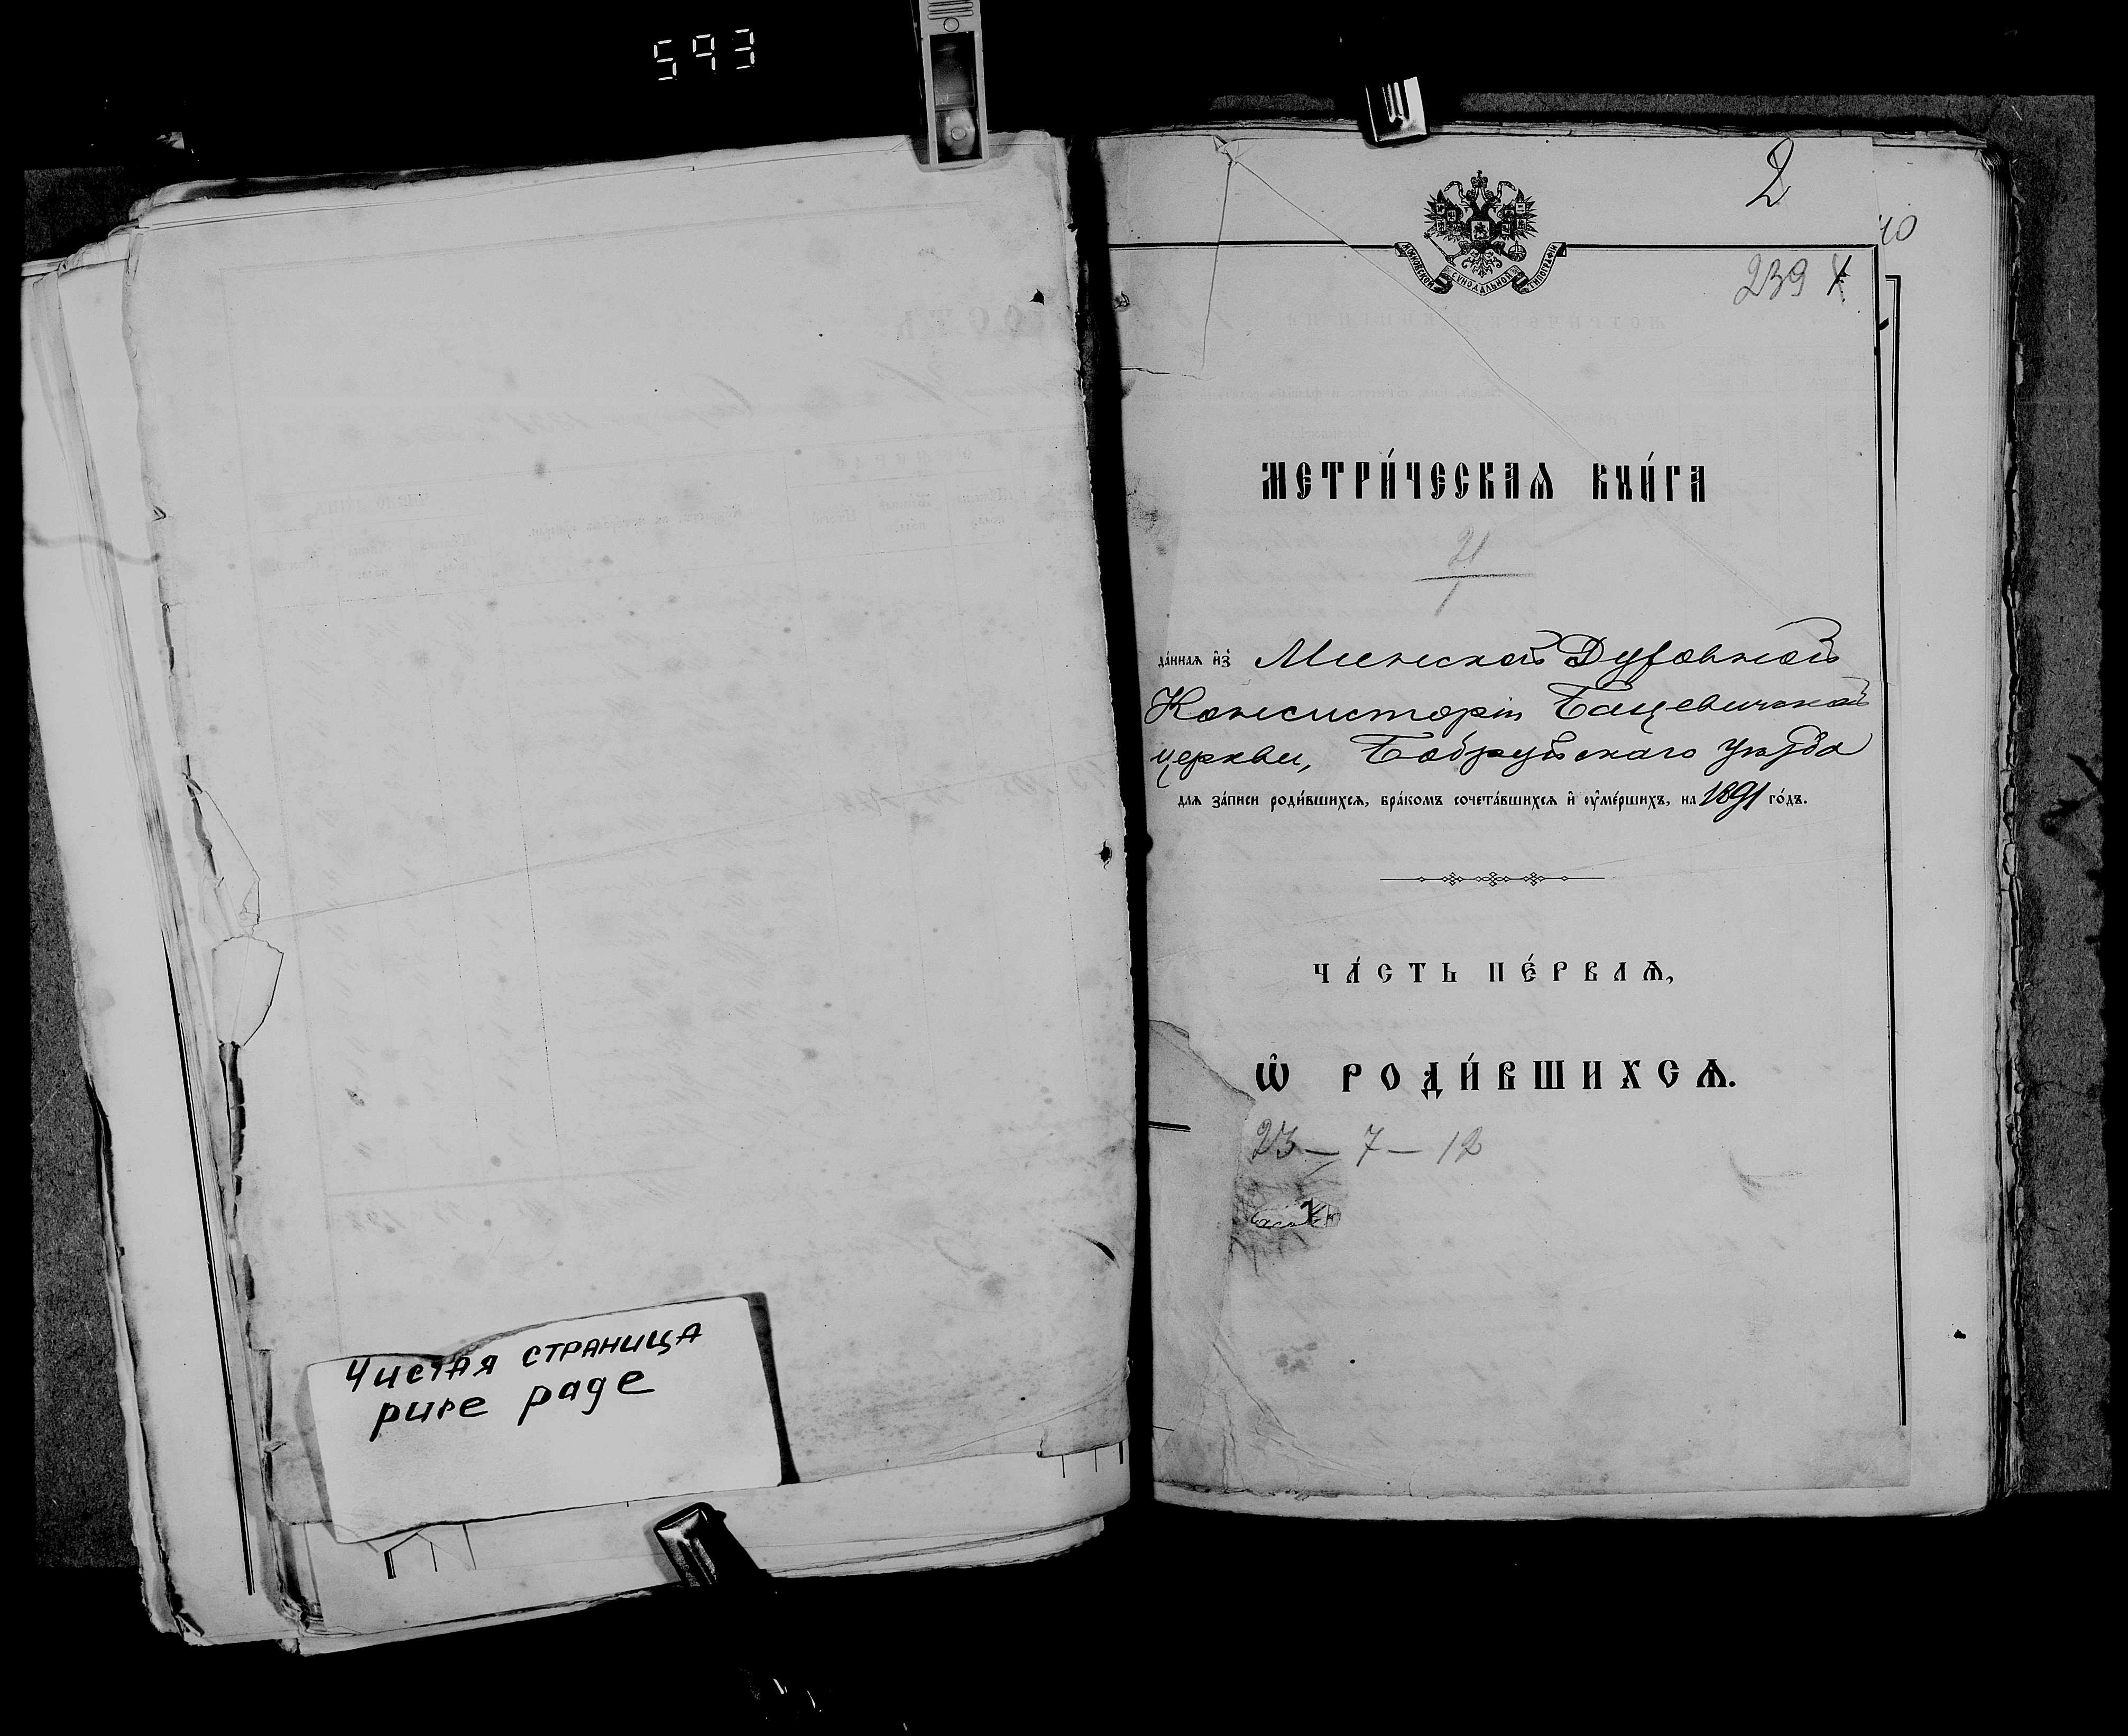 593
Чистая страница
pure page
2
40
МОСКОВСКОЙ СѴНОДАЛЬНОЙ ТИПОГРАФІИ
239
МЕТРИ́ЧЕСКАѦ КНИ́ГА
21
1
да́ннаѧ и҆з̾ Минской Духовной
Консисторіи Бацевичской
церкви, Бобруйскаго уѣзда
для за́писи роди́вшихсѧ, бра́комъ сочета́вшихсѧ и҆ ᲂу҆ме́ршихъ, на 1891 го́дъ.
ЧА́СТЬ ПЕ́РВАѦ,
Ѡ҆ РОДИ́ВШИХСѦ.
23 — 7 — 12